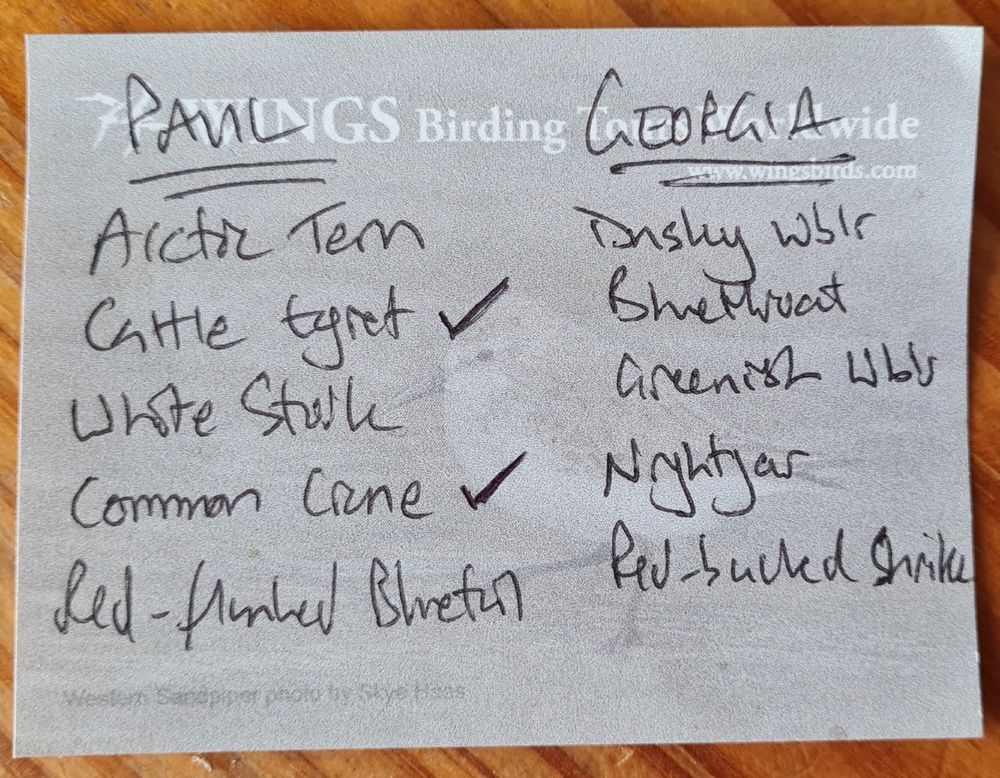 WINGS Birding Tours Worldwide
www.wingsbirds.com
PAUL
Arctic Tern
Cattle Egret ✓
White Stork
Common Crane ✓
Red-flanked Bluetail
GEORGIA
Dusky Wblr
Bluethroat
Greenish Wblr
Nightjar
Red-backed Shrike
Western Sandpiper photo by Skye Haas